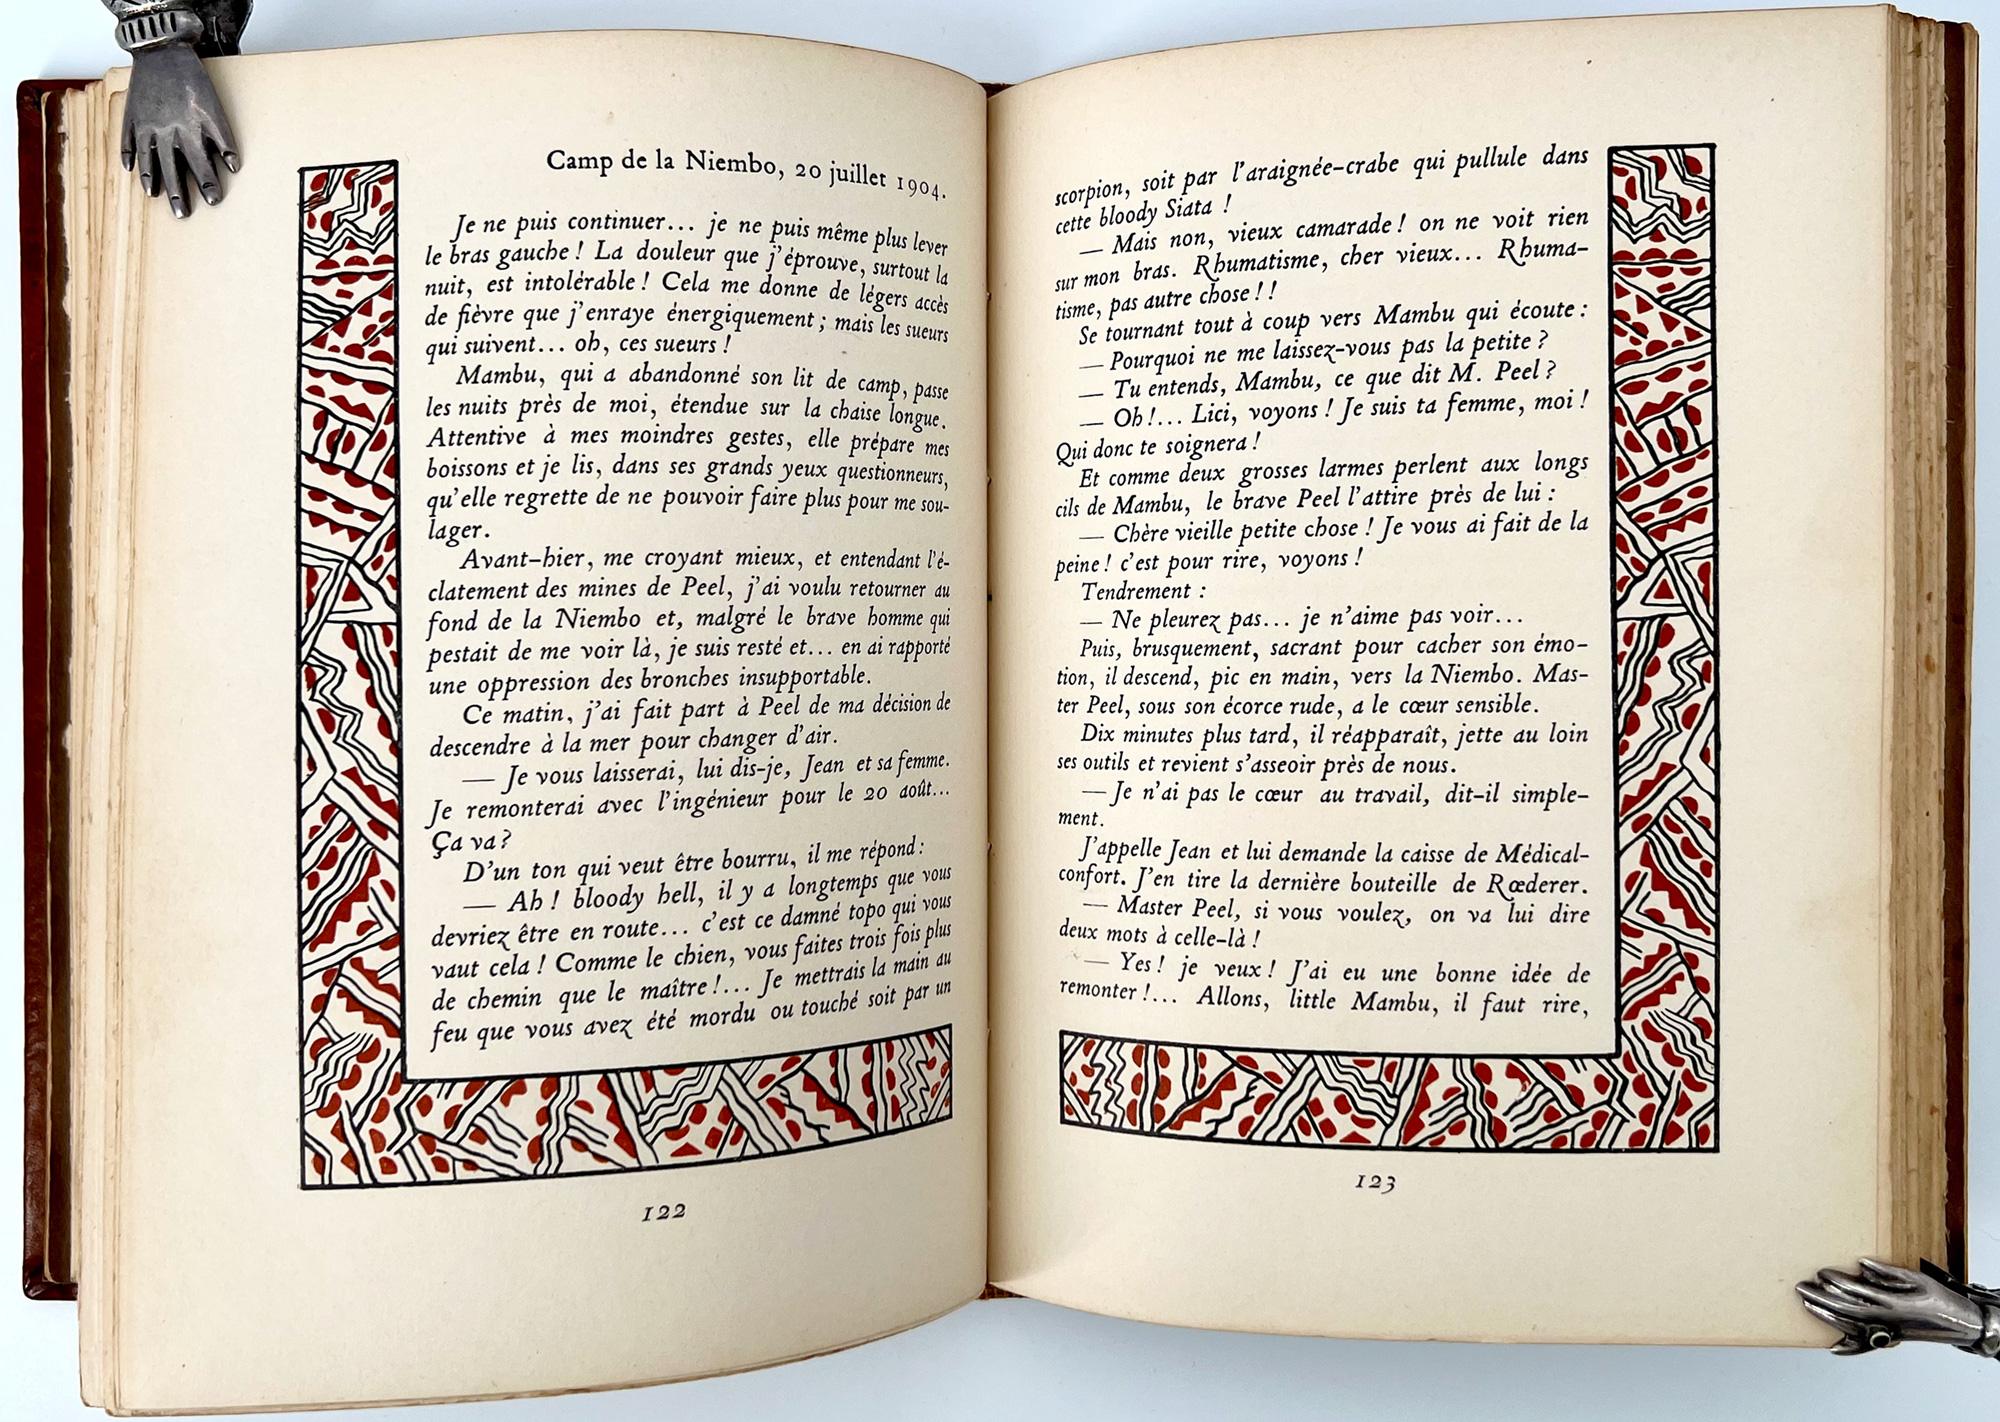 Camp de la Niembo, 20 juillet 1904.
Je ne puis continuer... je ne puis même plus lever
le bras gauche ! La douleur que j'éprouve, surtout la
nuit, est intolérable ! Cela me donne de légers accès
de fièvre que j'enraye énergiquement ; mais les sueurs
qui suivent... oh, ces sueurs !
Mambu, qui a abandonné son lit de camp, passe
les nuits près de moi, étendue sur la chaise longue.
Attentive à mes moindres gestes, elle prépare mes
boissons et je lis, dans ses grands yeux questionneurs,
qu'elle regrette de ne pouvoir faire plus pour me sou-
lager.
Avant-hier, me croyant mieux, et entendant l'é-
clatement des mines de Peel, j'ai voulu retourner au
fond de la Niembo et, malgré le brave homme qui
pestait de me voir là, je suis resté et... en ai rapporté
une oppression des bronches insupportable.
Ce matin, j'ai fait part à Peel de ma décision de
descendre à la mer pour changer d'air.
— Je vous laisserai, lui dis-je, Jean et sa femme.
Je remonterai avec l'ingénieur pour le 20 août...
Ça va ?
D'un ton qui veut être bourru, il me répond :
— Ah ! bloody hell, il y a longtemps que vous
devriez être en route... c'est ce damné topo qui vous
vaut cela ! Comme le chien, vous faites trois fois plus
de chemin que le maître !... Je mettrais la main au
feu que vous avez été mordu ou touché soit par un
122
scorpion, soit par l'araignée-crabe qui pullule dans
cette bloody Siata !
— Mais non, vieux camarade ! on ne voit rien
sur mon bras. Rhumatisme, cher vieux... Rhuma-
tisme, pas autre chose ! !
Se tournant tout à coup vers Mambu qui écoute :
— Pourquoi ne me laissez-vous pas la petite ?
— Tu entends, Mambu, ce que dit M. Peel ?
— Oh !... Lici, voyons ! Je suis ta femme, moi !
Qui donc te soignera !
Et comme deux grosses larmes perlent aux longs
cils de Mambu, le brave Peel l'attire près de lui :
— Chère vieille petite chose ! Je vous ai fait de la
peine ! c'est pour rire, voyons !
Tendrement :
— Ne pleurez pas... je n'aime pas voir...
Puis, brusquement, sacrant pour cacher son émo-
tion, il descend, pic en main, vers la Niembo. Mas-
ter Peel, sous son écorce rude, a le cœur sensible.
Dix minutes plus tard, il réapparaît, jette au loin
ses outils et revient s'asseoir près de nous.
— Je n'ai pas le cœur au travail, dit-il simple-
ment.
J'appelle Jean et lui demande la caisse de Médical-
confort. J'en tire la dernière bouteille de Rœderer.
— Master Peel, si vous voulez, on va lui dire
deux mots à celle-là !
— Yes ! je veux ! J'ai eu une bonne idée de
remonter !... Allons, little Mambu, il faut rire,
123